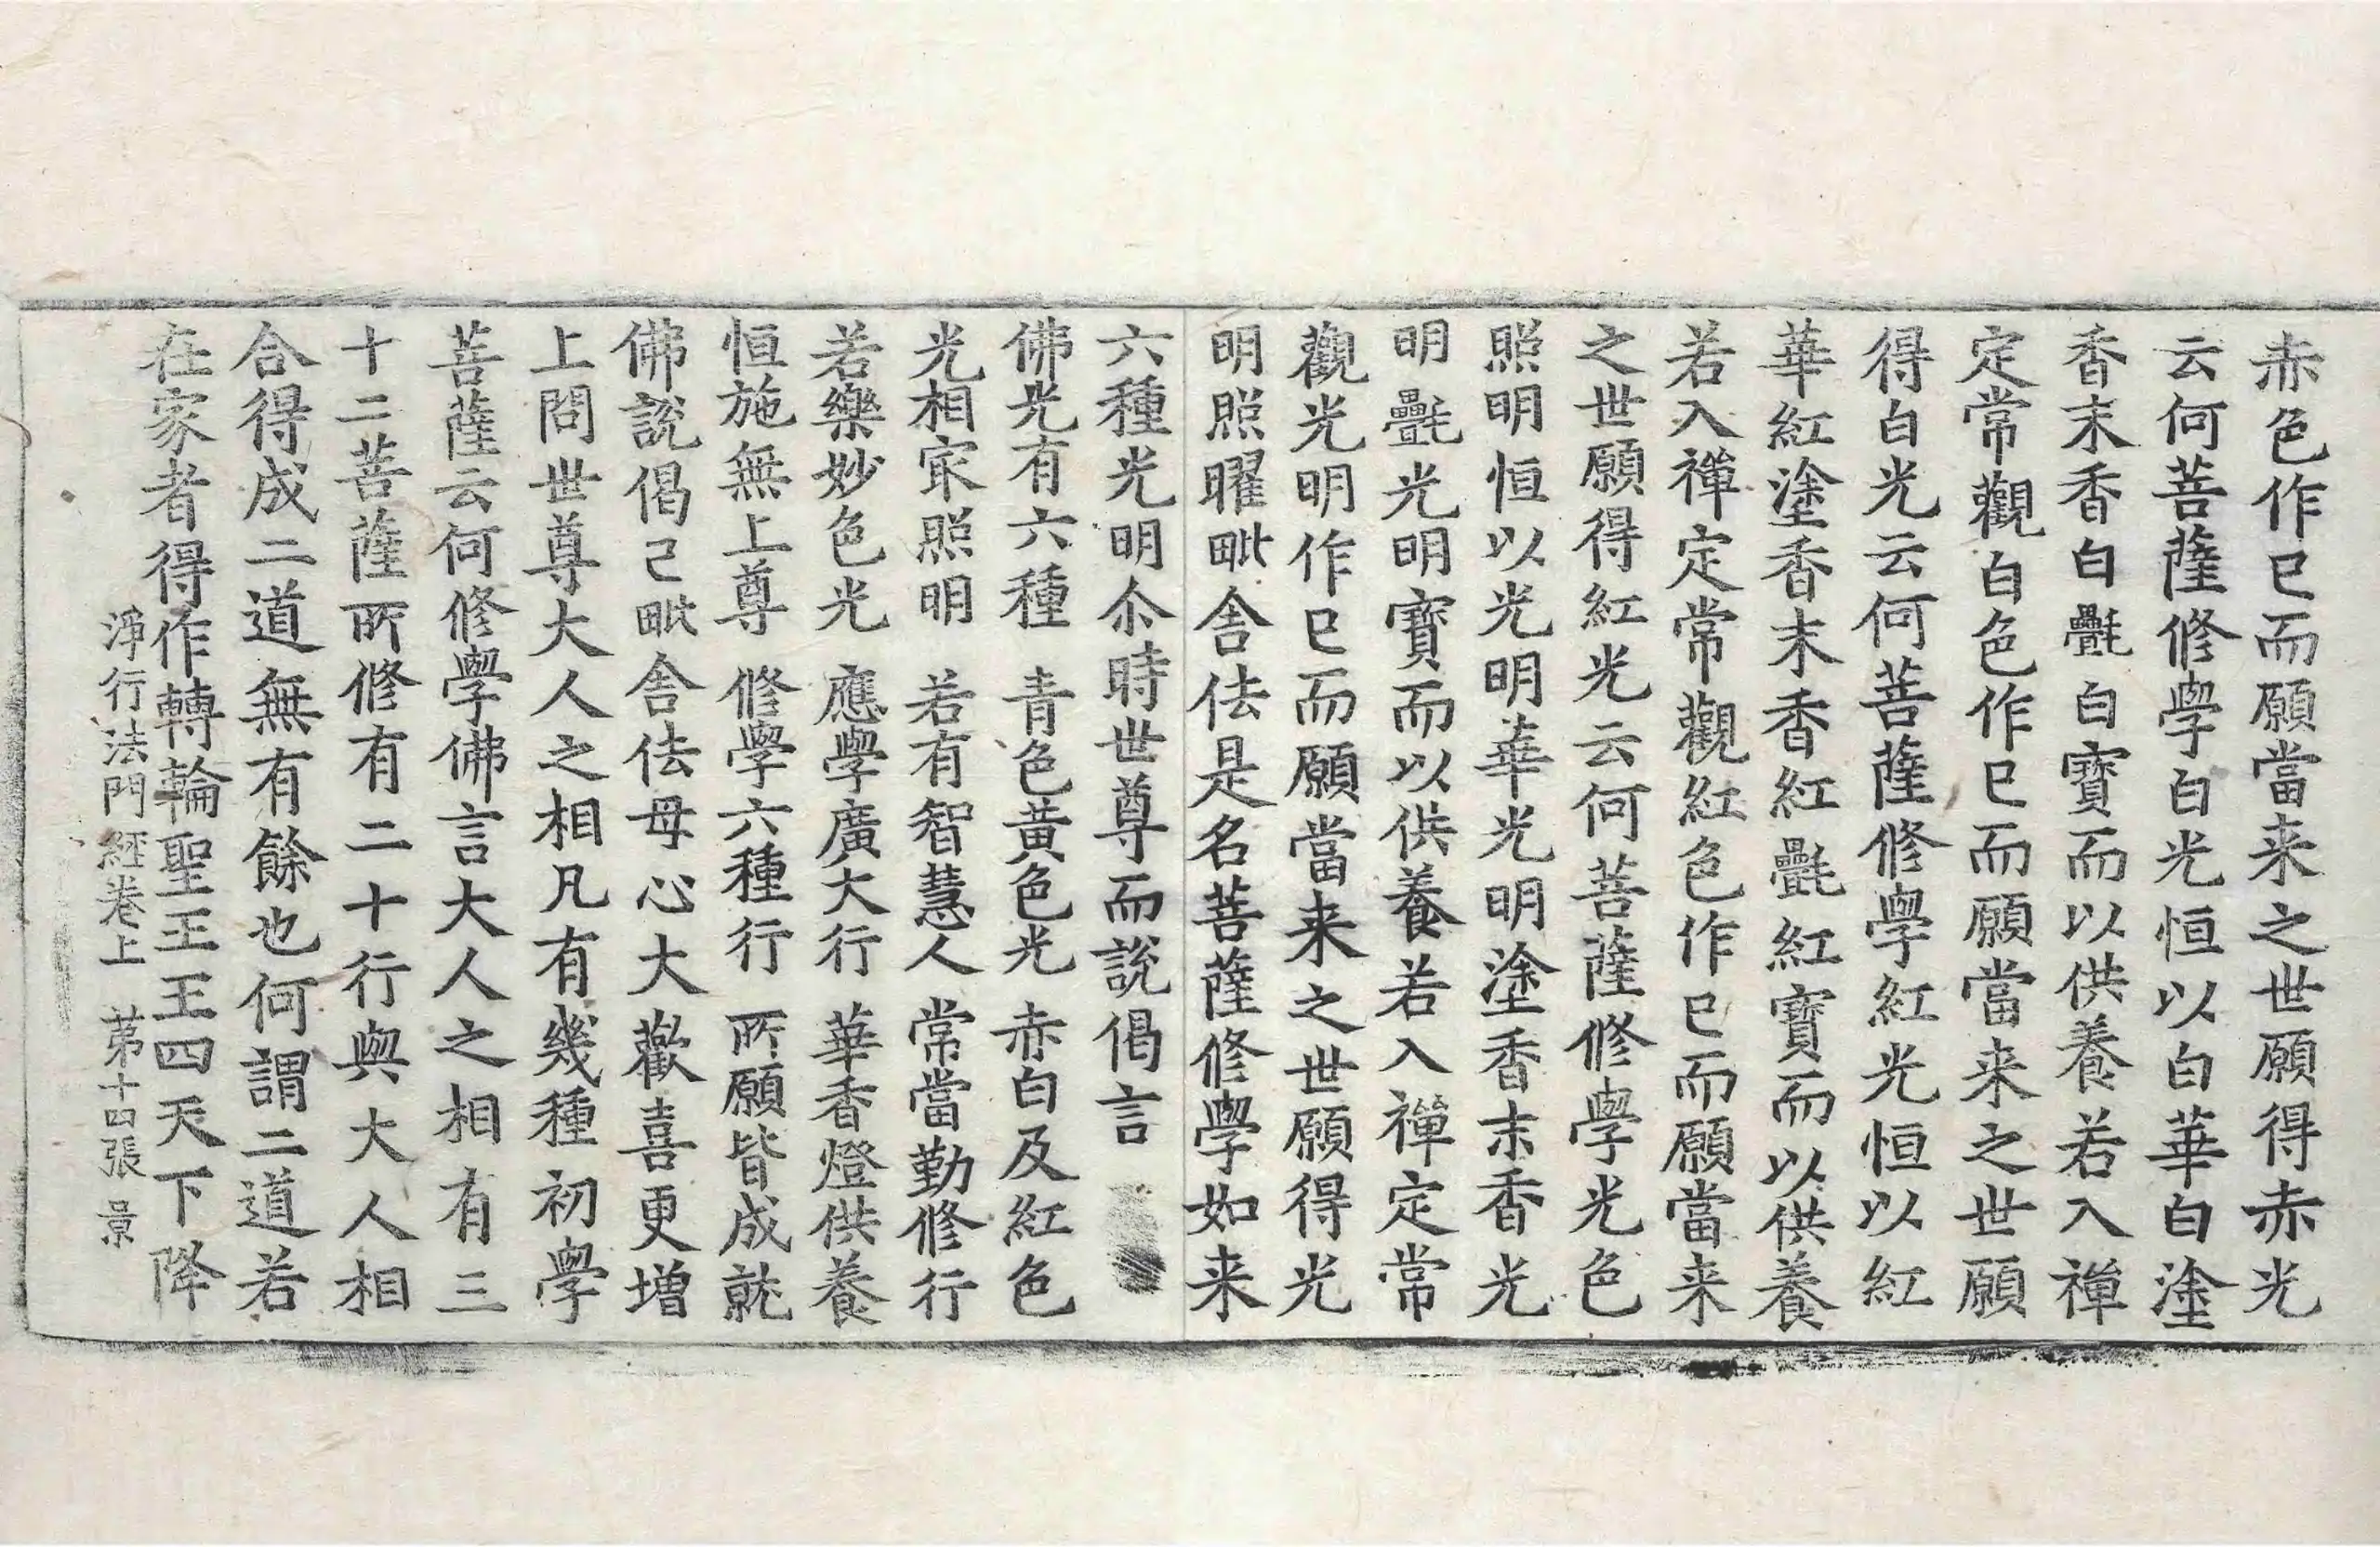 赤色作已而願當来之世願得赤光
云何菩薩修學白光恒以白華白塗
香末香白氎白寶而以供養若入禪
定常觀白色作已而願當来之世願
得白光云何菩薩修學紅光恒以紅
華紅塗香末香紅氎紅寶而以供養
若入禪定常觀紅色作已而願當来
之世願得紅光云何菩薩修學光色
照明恒以光明華光明塗香末香光
明氎光明寶而以供養若入禪定常
觀光明作已而願當来之世願得光
明照曜毗舍佉是名菩薩修學如来
六種光明尒時世尊而說偈言
佛光有六種　青色黃色光　赤白及紅色
光相㝡照明　若有智慧人　常當勤修行
若樂妙色光　應學廣大行　華香燈供養
恒施無上尊　修學六種行　所願皆成就
佛說偈已毗舍佉母心大歡喜更增
上問世尊大人之相凡有幾種初學
菩薩云何修學佛言大人之相有三
十二菩薩所修有二十行與大人相
合得成二道無有餘也何謂二道若
在家者得作轉輪聖王王四天下降
淨行法門經卷上　第十四張　景